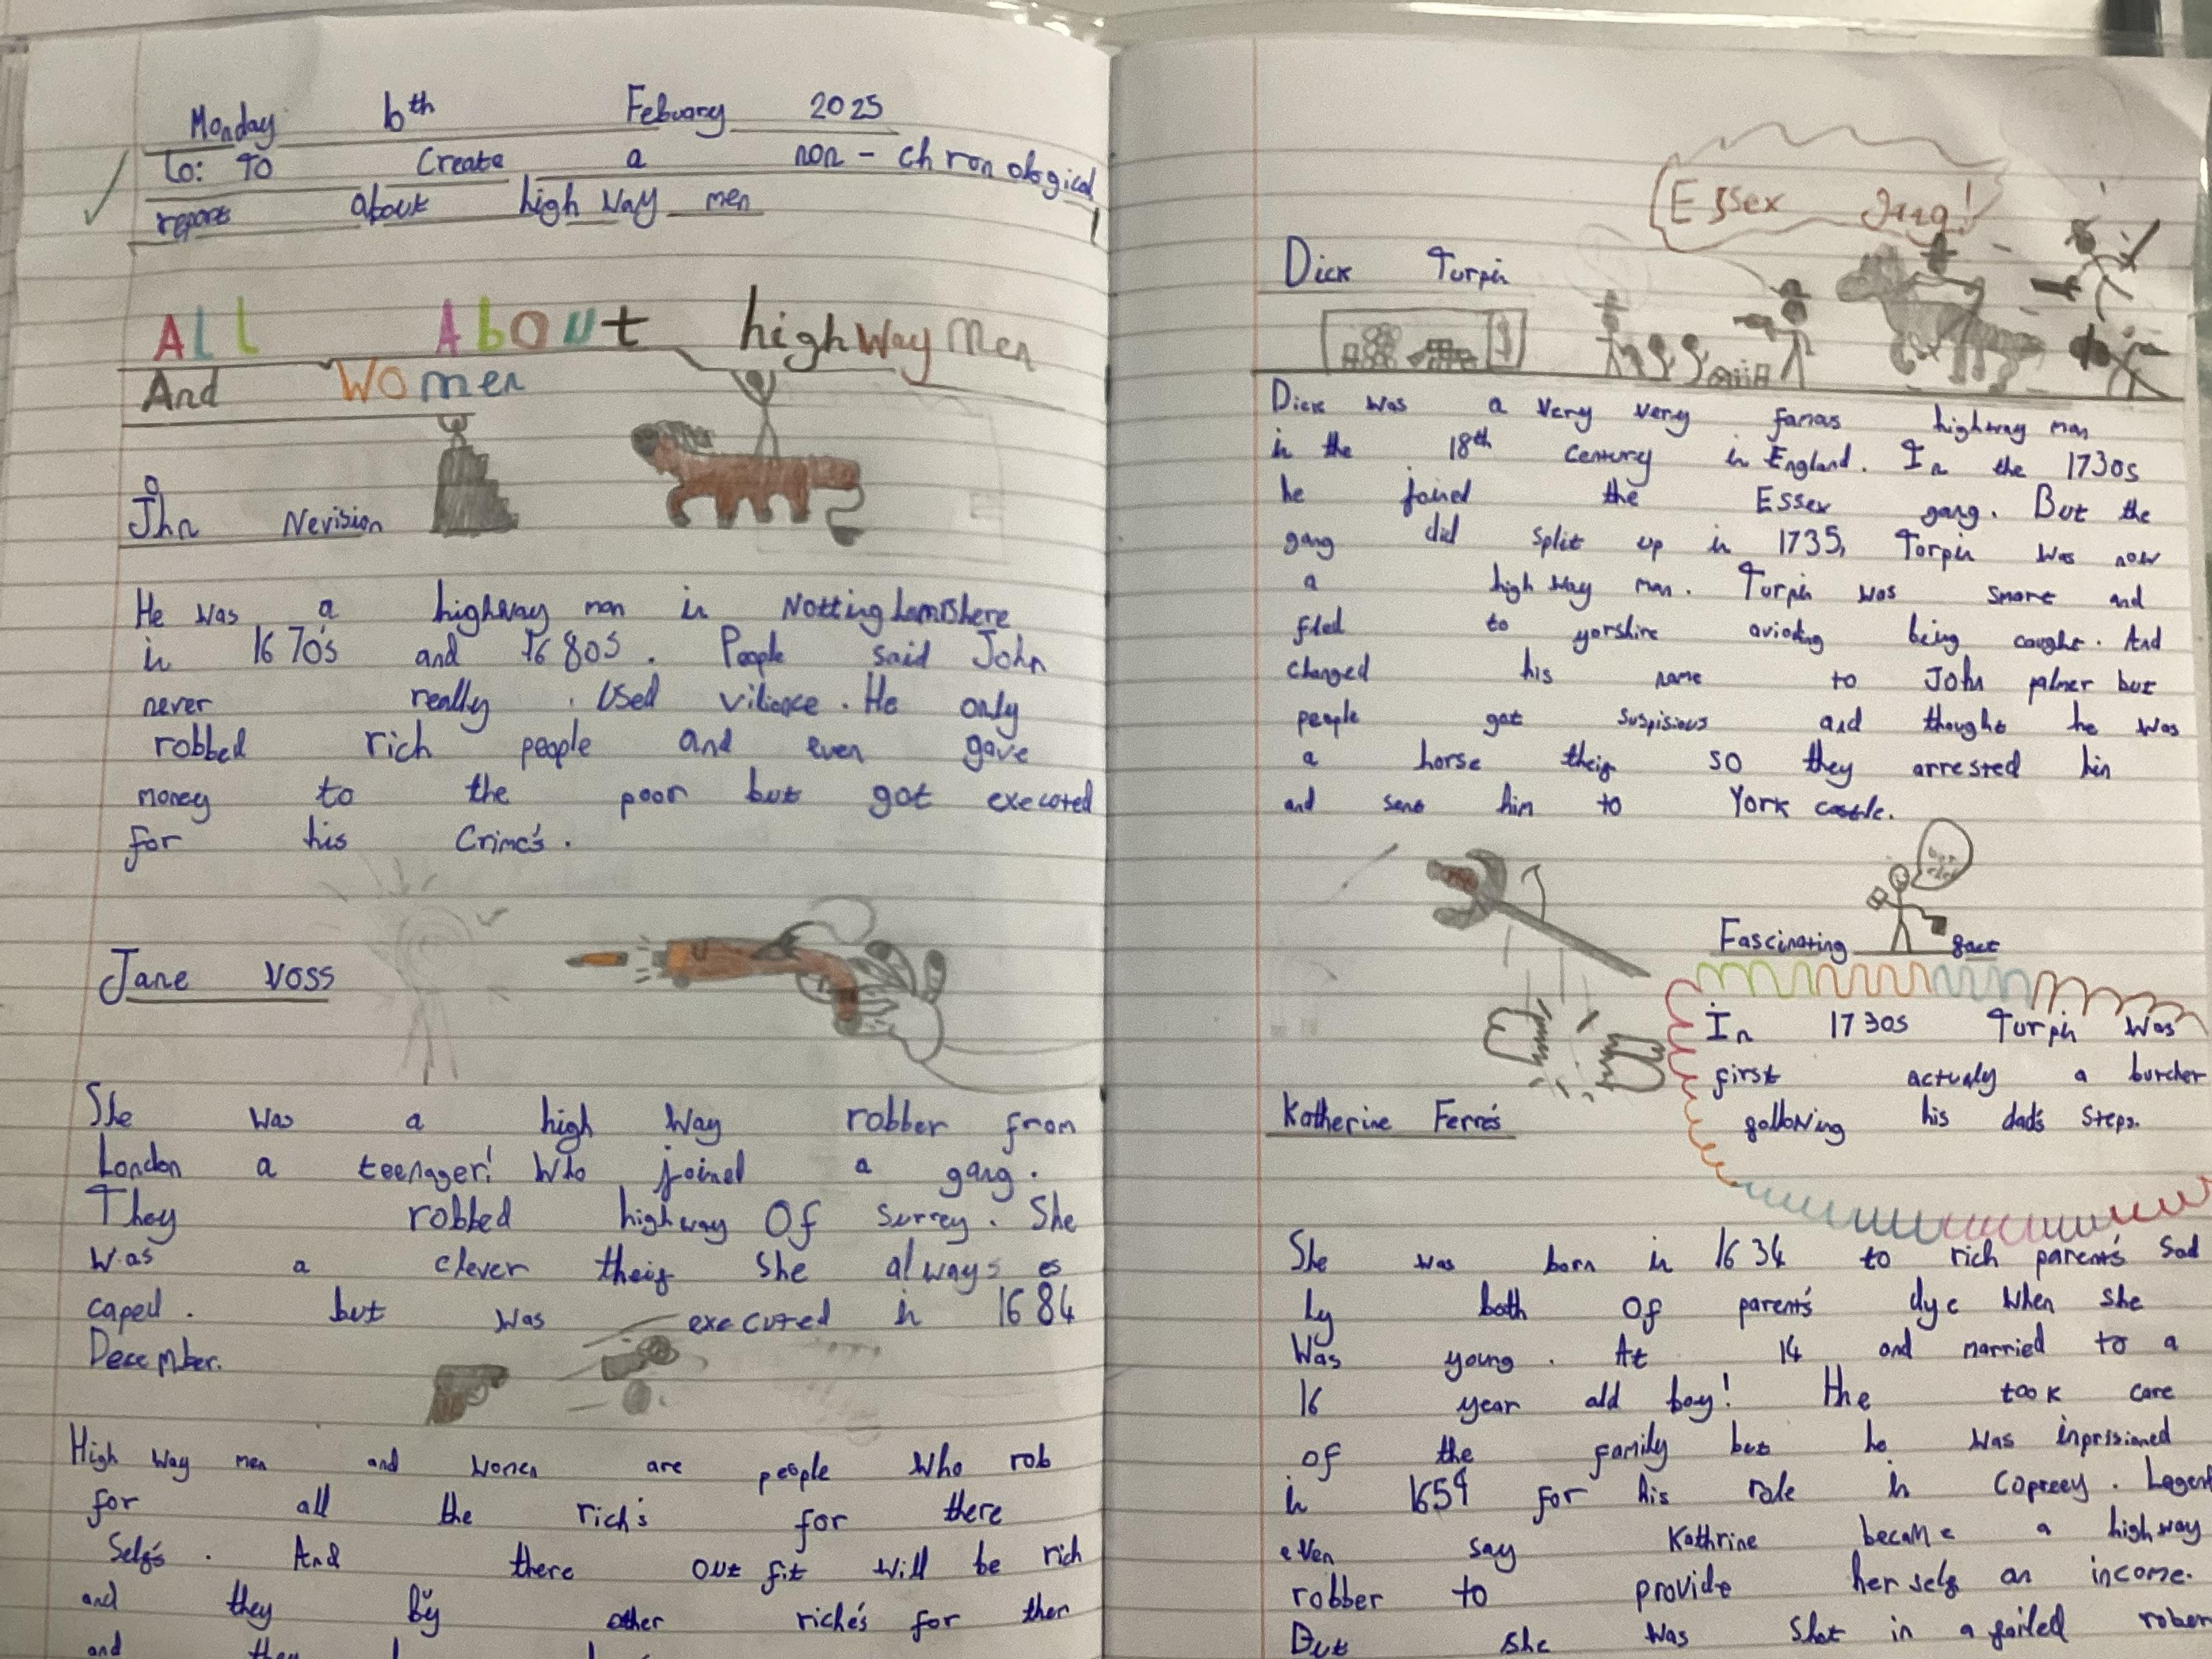 Monday 6th Febuary 2025
Lo: To Create a non-chronological
report about high way men
All About highway men
And Women
John Nevision
He was a highway man in Nottinghamshere
in 1670's and 1680s. People said John
never really. Used viliance. He only
robbed rich people and even gave
money to the poor but got executed
for his Crime's.
Jane Voss
She was a high way robber from
London a teenager! Who joined a gang.
They robbed highway Of Surrey. She
was a clever theif she always es
caped. but was executed in 1684
December.
High way men and women are people who rob
for all the rich's for there
Self's. And there out fit will be rich
and they by other riche's for then
and they
Essex Gang!
Dick Turpin
Dick was a very very famas highway man
in the 18th Century in England. In the 1730s
he joined the Essex gang. But the
gang did split up in 1735, Torpin was now
a high way man. Turpin was smart and
fled to yorshire avioding being caught. And
changed his name to John palmer but
people got suspisious and thought he was
a horse theif so they arrested him
and sent him to York castle.
Fascinating fact
In 1730s Turpin was
first actualy a butcher
following his dad's steps.
Katherine Ferre's
She was born in 1634 to rich parent's Sad
ly both Of parent's dye when she
Was young. At 14 and married to a
16 year old boy! He took care
of the family but he was inprisioned
in 1659 for his role in Copreey. Legent
even say Kathrine became a highway
robber to provide her self an income.
But she was shot in a failed rober